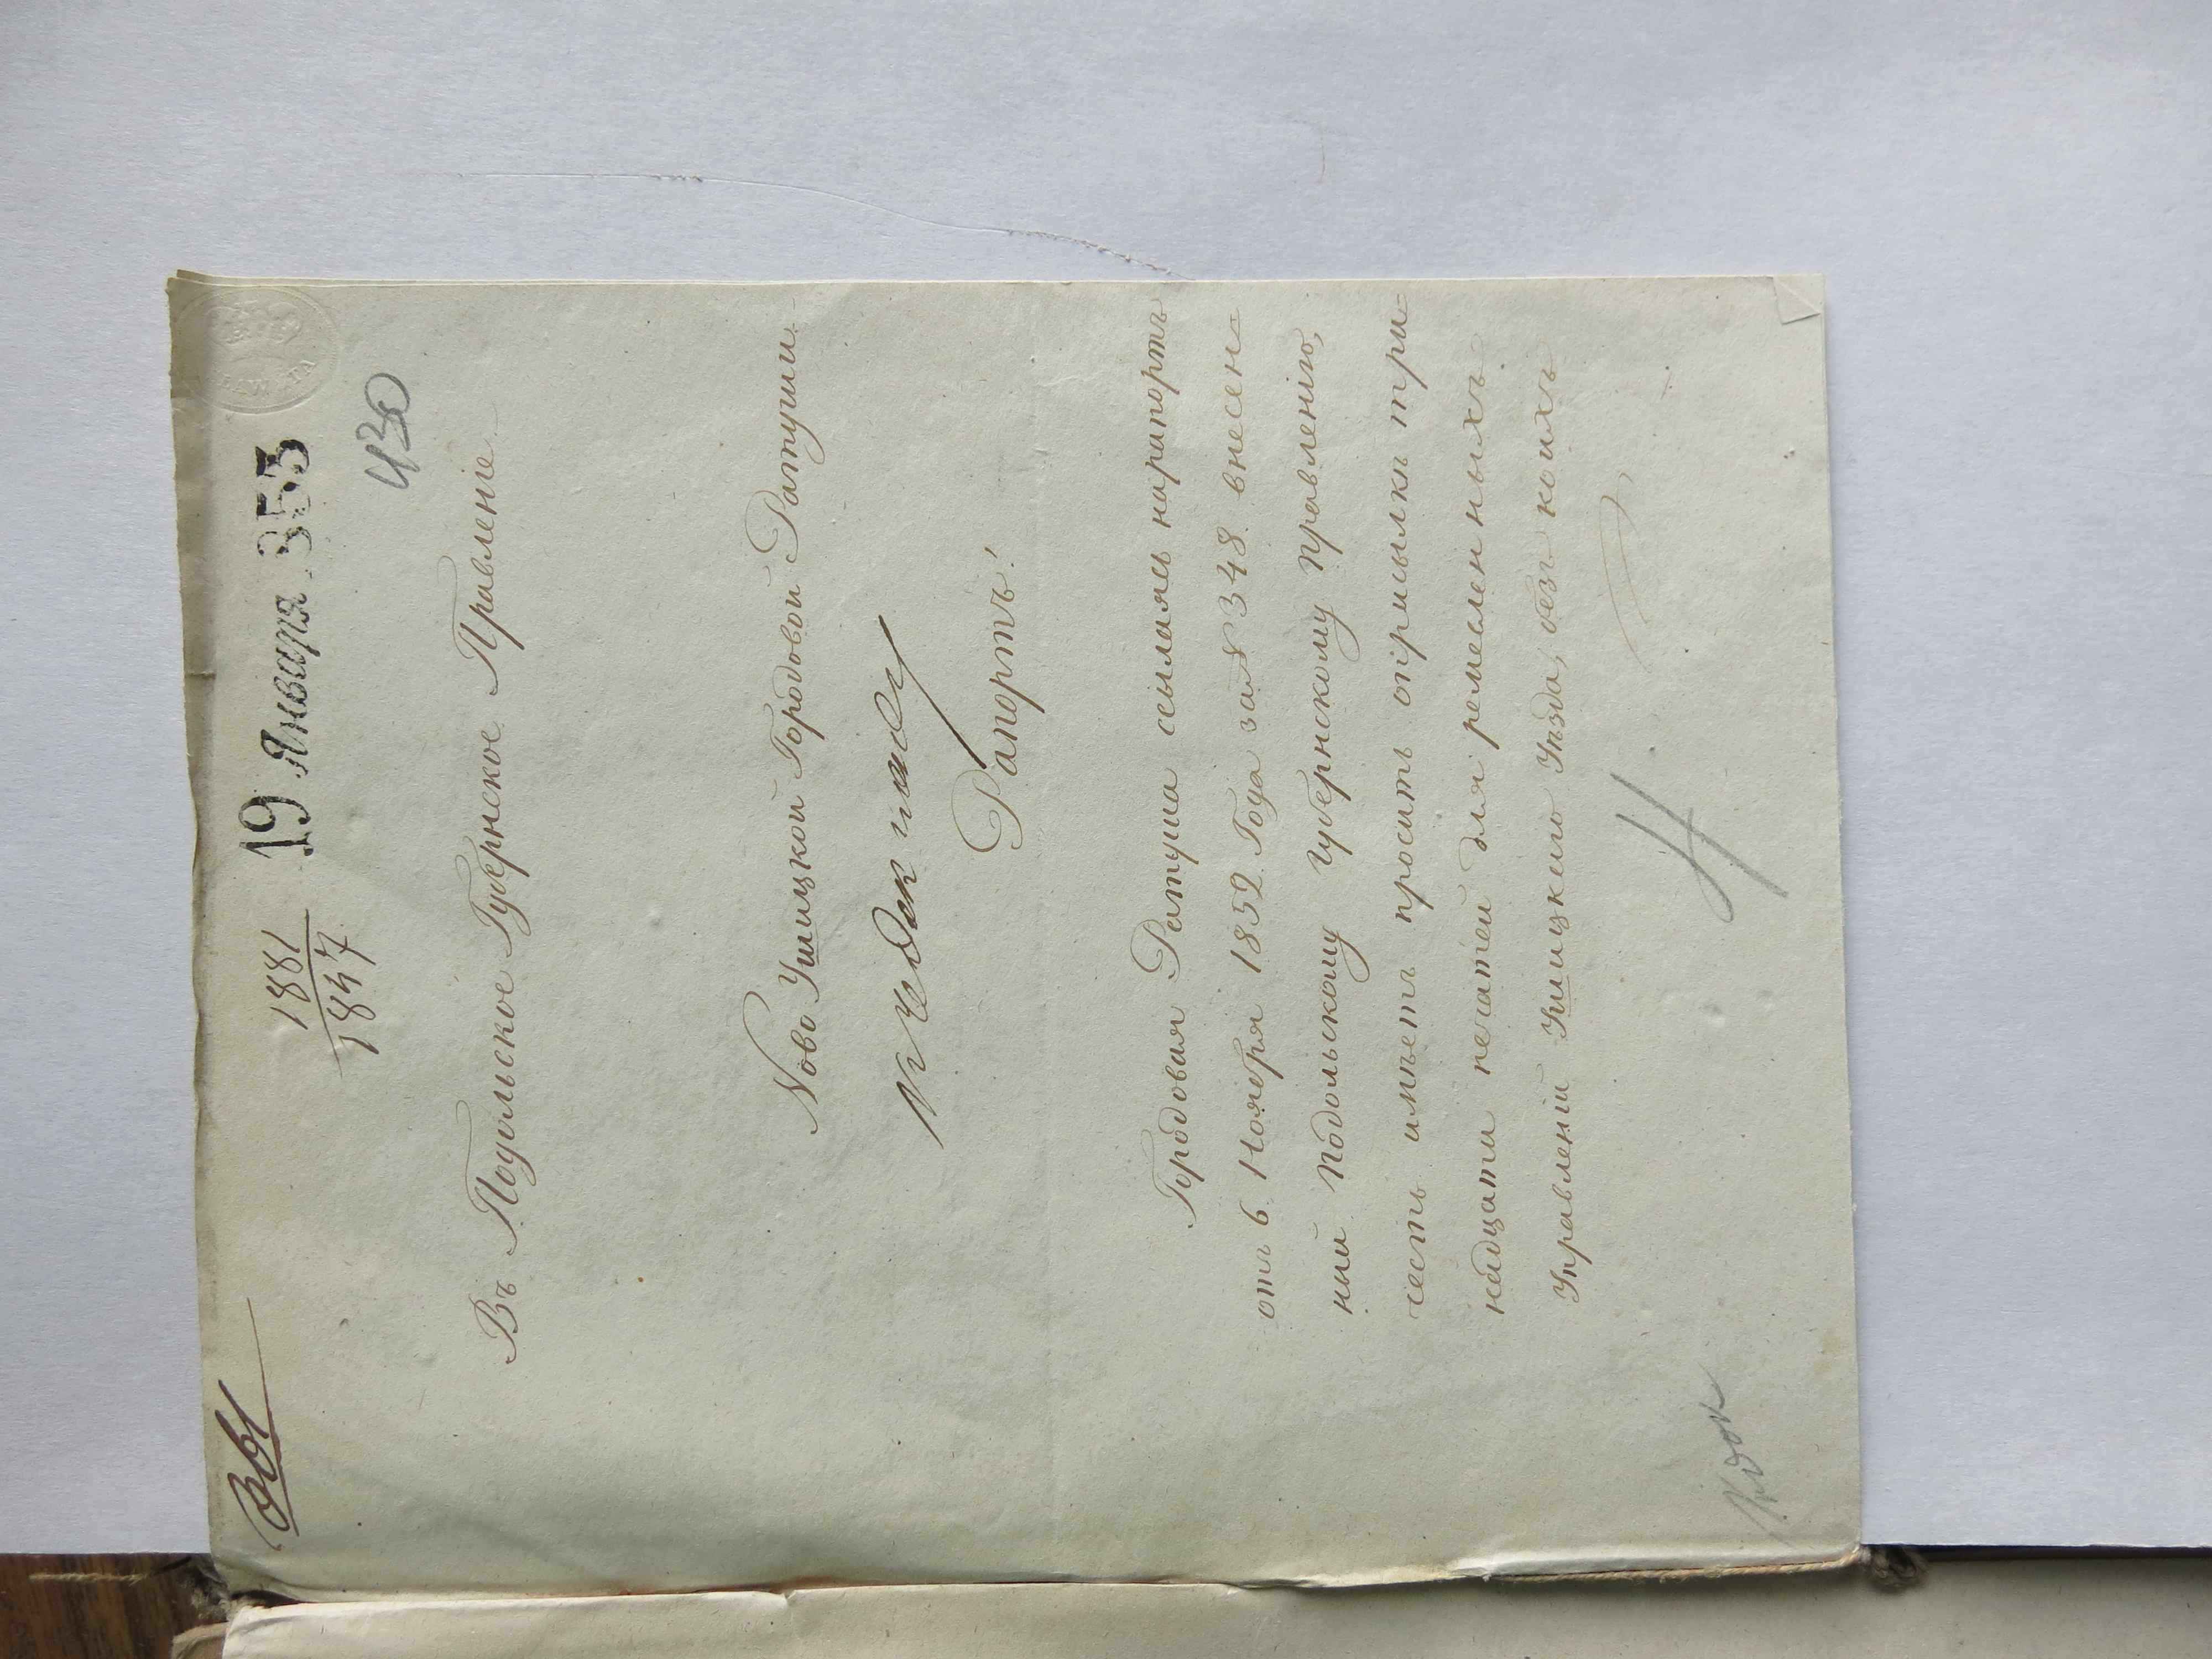 361
1881
1847
19 Января 353
430
Въ Подольское Губернское Правленіе
Ново Ушицкой Городовой Ратуши
Рапортъ!
Городовая Ратуша ссылаясь нарапортъ
отъ 6 Ноября 1852 Года за№ 348 внесен=
ный Подольскому Губернскому Правленію,
честь имѣетъ просить оприсылкѣ три=
надцати печатей для ремесленныхъ
Управленій Ушицкого Уѣзда, безъ коихъ